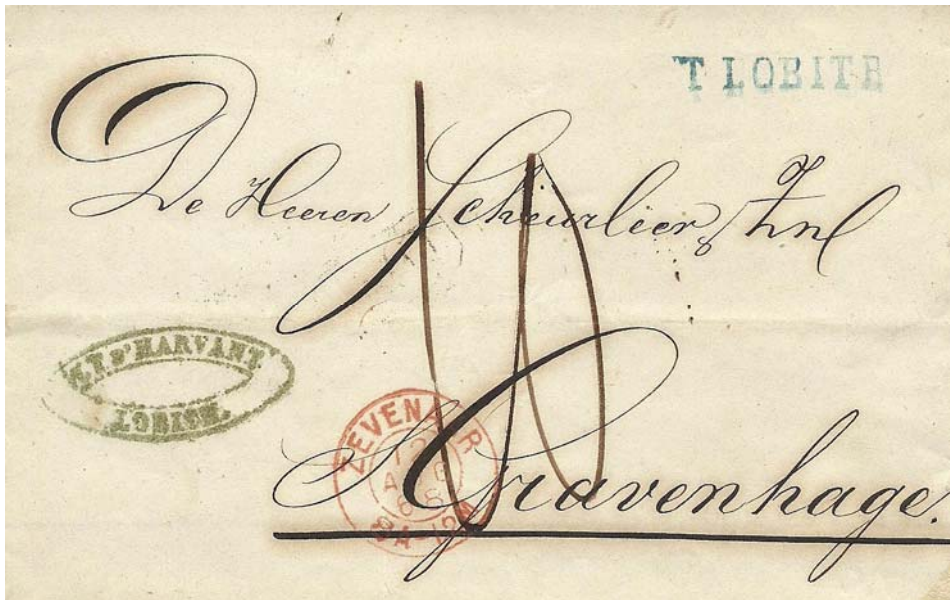 T LOBITH
De Heeren Scheurleer & Znl
10
D'HARVANT
LOBITH.
ZEVENAAR
12
AUG
68
8A-12M
S Gravenhage.